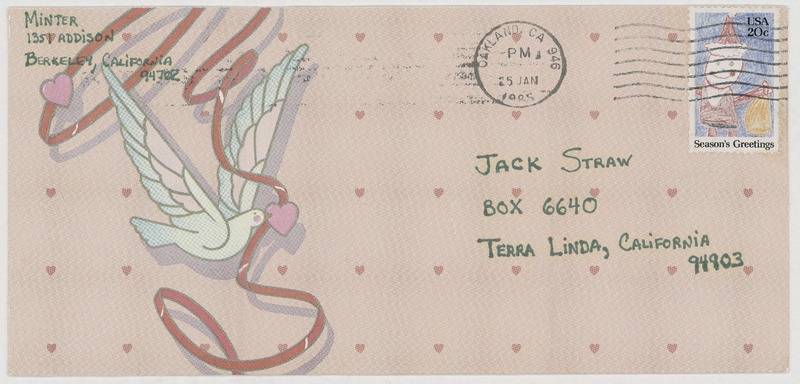 MINTER
1351 ADDISON
BERKELEY, CALIFORNIA
94702
OAKLAND, CA 946
PM
25 JAN
1985
USA
20c
Season's Greetings
JACK STRAW
BOX 6640
TERRA LINDA, CALIFORNIA
94903